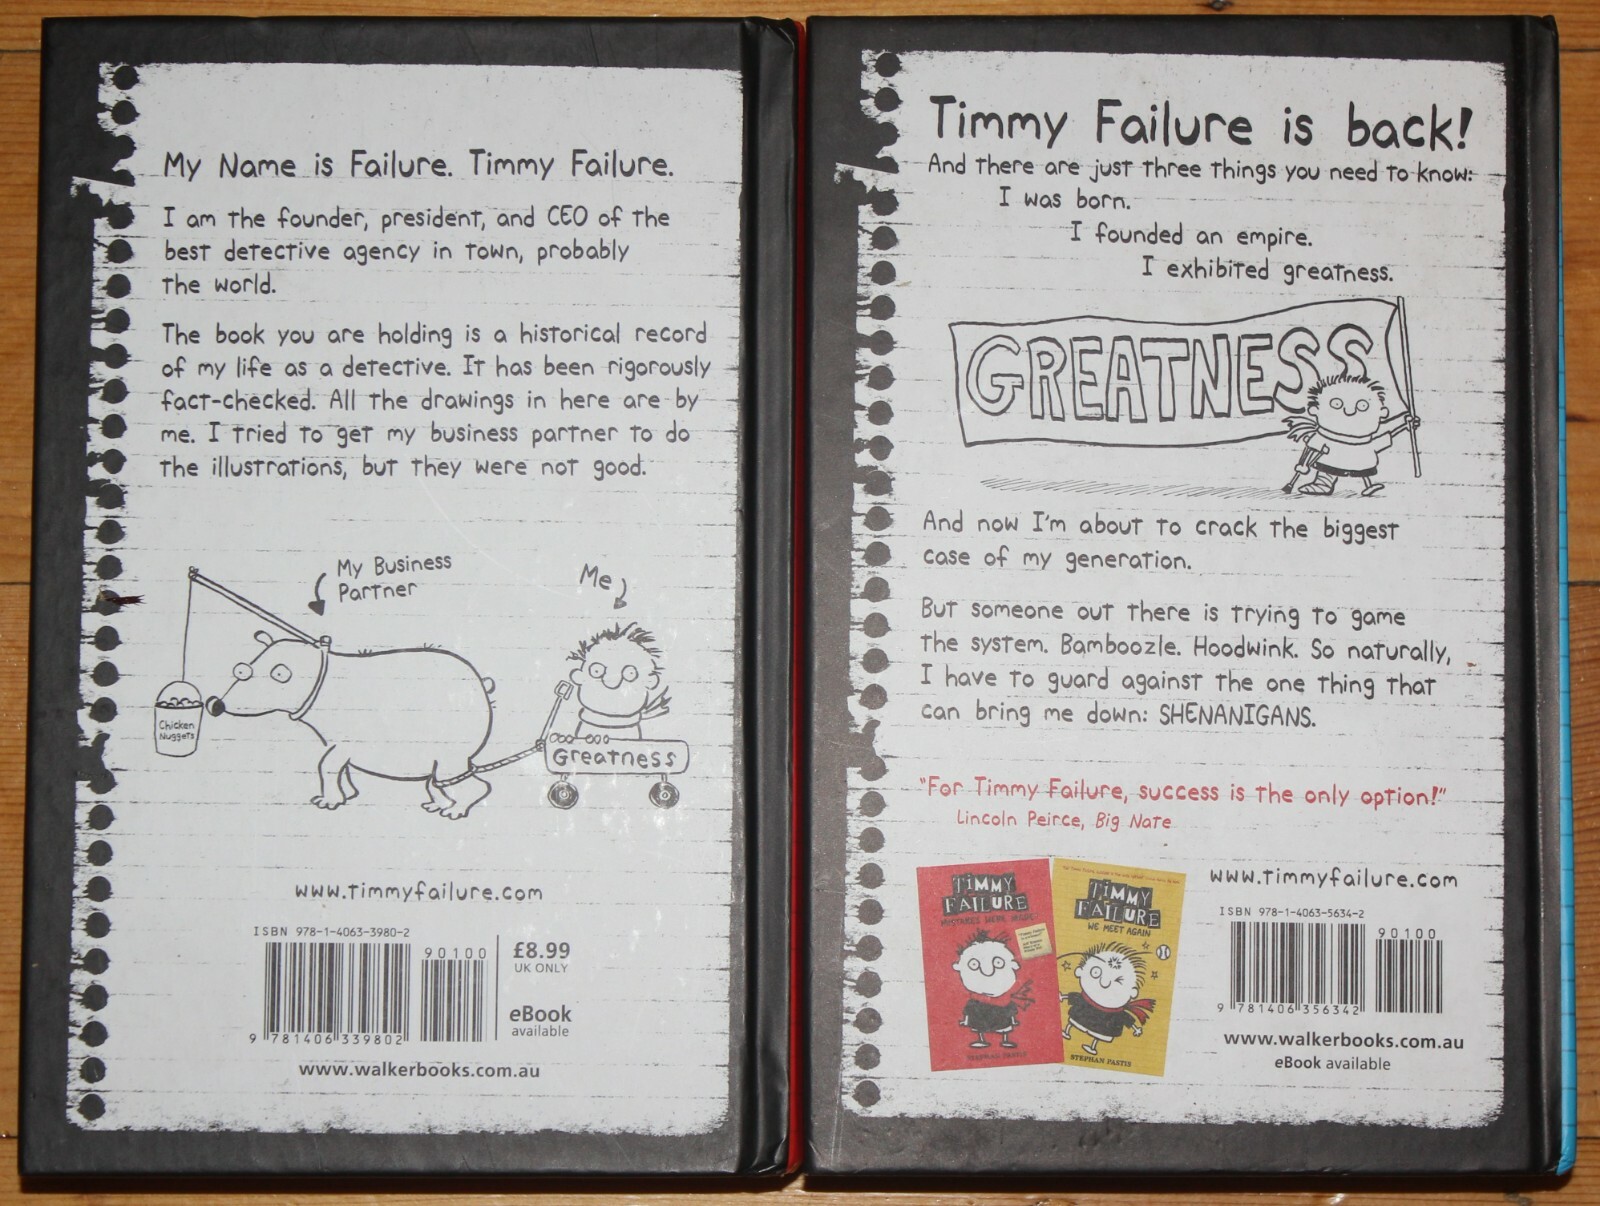 My Name is Failure. Timmy Failure.
I am the founder, president, and CEO of the
best detective agency in town, probably
the world.
The book you are holding is a historical record
of my life as a detective. It has been rigorously
fact-checked. All the drawings in here are by
me. I tried to get my business partner to do
the illustrations, but they were not good.
My Business
Partner
Me
Chicken
Nuggets
Greatness
www.timmyfailure.com
ISBN 978-1-4063-3980-2
90100
£8.99
UK ONLY
eBook
available
9 781406 339802
www.walkerbooks.com.au
Timmy Failure is back!
And there are just three things you need to know:
I was born.
I founded an empire.
I exhibited greatness.
GREATNESS
And now I'm about to crack the biggest
case of my generation.
But someone out there is trying to game
the system. Bamboozle. Hoodwink. So naturally,
I have to guard against the one thing that
can bring me down: SHENANIGANS.
"For Timmy Failure, success is the only option!"
Lincoln Peirce, Big Nate
TiMMY
FAiLURE
MISTAKES WERE MADE
STEPHAN PASTIS
TiMMY
FAiLURE
WE MEET AGAIN
STEPHAN PASTIS
www.timmyfailure.com
ISBN 978-1-4063-5634-2
90100
9 781406 356342
www.walkerbooks.com.au
eBook available